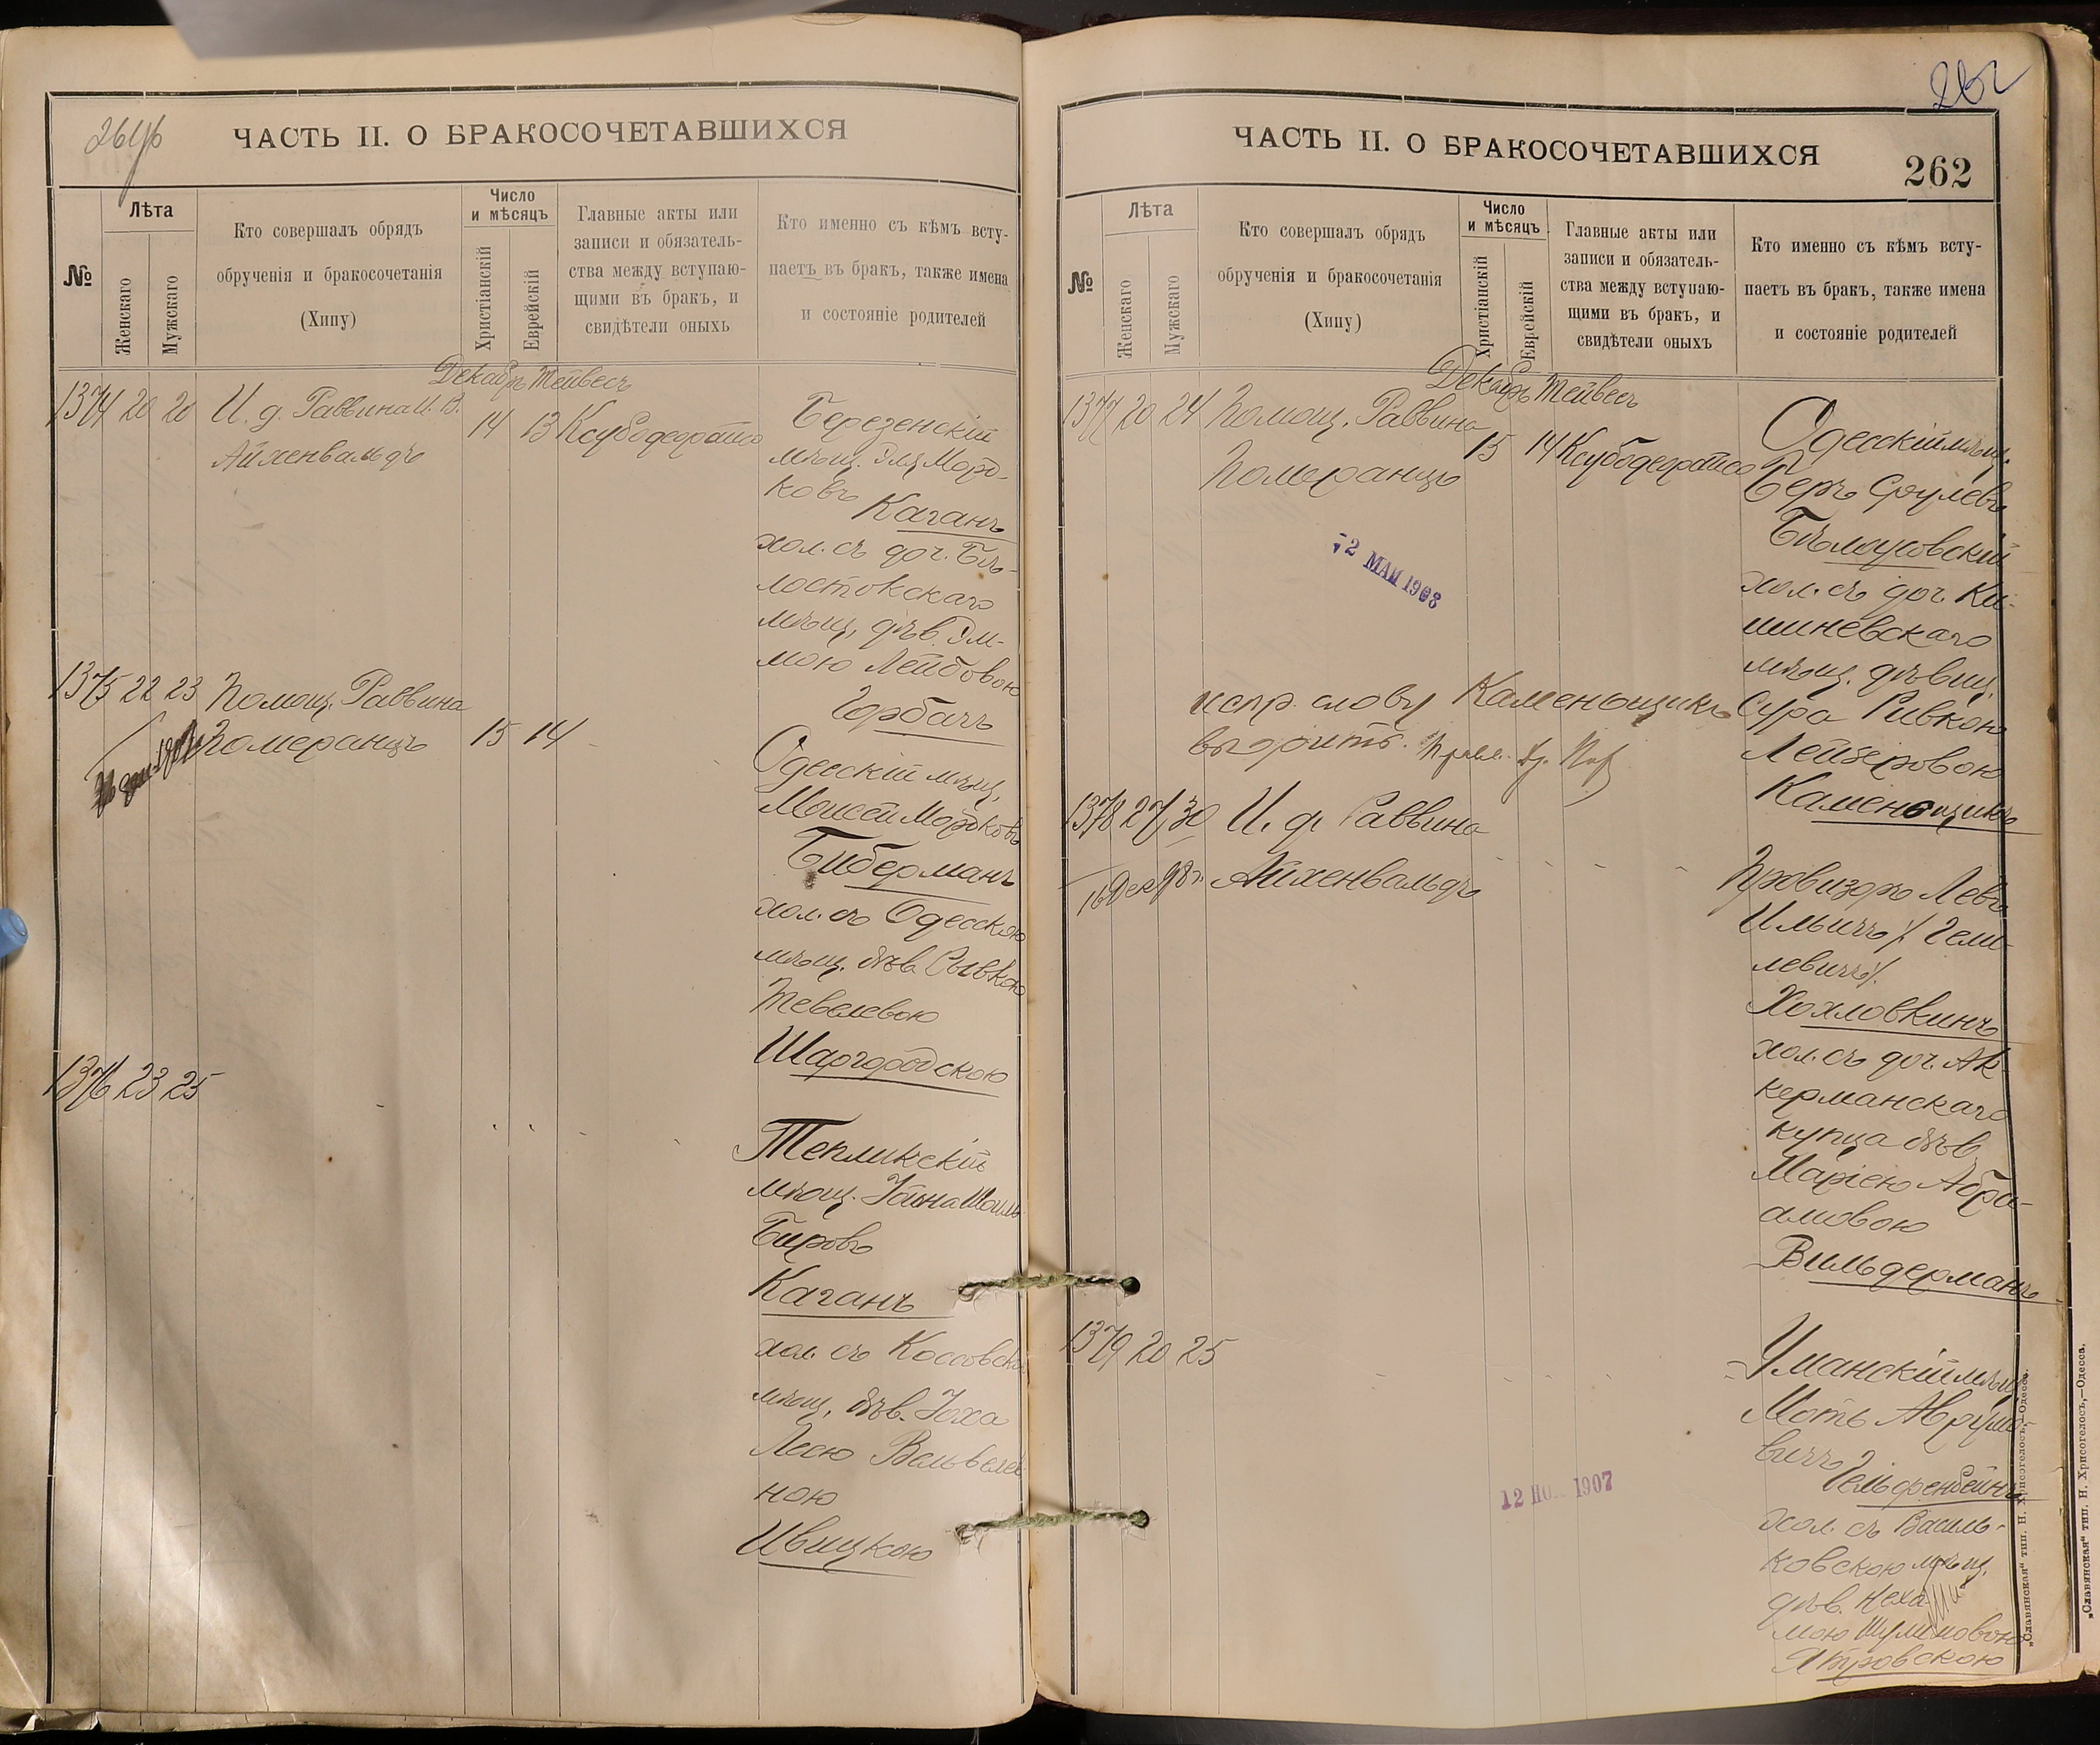 261об
ЧАСТЬ II. О БРАКОСОЧЕТАВШИХСЯ
№
Лѣта
Женскаго
Мужскаго
Кто совершалъ обрядъ
обрученія и бракосочетанія
(Хипу)
Число
и мѣсяцъ
Христіанскій
Еврейскій
Главные акты или
записи и обязатель-
ства между вступаю-
щими въ бракъ, и
свидѣтели оныхъ
Кто именно съ кѣмъ всту-
паетъ въ бракъ, также имена
и состояніе родителей
Декабрь Тейвесъ
1374 20 20 И. д. Раввина
Айхенвальдъ
14 13
Березенскій
мѣщ. Эля Морд-
ковъ
Каганъ
хол. съ доч. Бѣ-
лостокскаго
мѣщ. дѣв. Эль-
мою Лейбовою
Горбачъ
1375 22 23 Помощ. Раввина
Померанцъ 15 14
Одесскій мѣщ.
Моисей Мордковъ
Биберманъ
хол. съ Одесскою
мѣщ. дѣв. Рывкою
Тевелевою
Шаргородскою
1376 23 25
Тепликскій
мѣщ.
Беровъ
Каганъ
хол. съ
мѣщ. дѣв.
Лею Вельвелев-
ною
Ивицкою
262
ЧАСТЬ II. О БРАКОСОЧЕТАВШИХСЯ
262
№
Лѣта
Женскаго
Мужскаго
Кто совершалъ обрядъ
обрученія и бракосочетанія
(Хипу)
Число
и мѣсяцъ
Христіанскій
Еврейскій
Главные акты или
записи и обязатель-
ства между вступаю-
щими въ бракъ, и
свидѣтели оныхъ
Кто именно съ кѣмъ всту-
паетъ въ бракъ, также имена
и состояніе родителей
Декабрь Тейвесъ
1377 20 24 Помощ. Раввина
Померанцъ
15 14
Одесскій мѣщ.
Беръ Срулевъ
Бѣлоусовскій
хол. съ доч. Ки-
шиневскаго
мѣщ. дѣвиц.
Сура Ривкою
Лейзеровою
Каменощикъ
2 МАИ 1908
испр. слову Каменощикъ
вѣрить.
1378 27 30 И. д. Раввина
Айхенвальдъ
16 Дек 98 г.
Провизоръ Левъ
Ильичъ / Гели-
левичъ /.
Хохловкинъ
хол. съ доч. Ак-
керманскаго
купца дѣв.
Маріею Абра-
амовою
Вильдерманъ
1379 20 25
Уманскій мѣщ.
Моть Аврумо-
вичъ
Гельфенбейнъ
хол. съ Василь-
ковскою мѣщ.
дѣв. Неха
Шулимовою
Ятровскою
12 НО 1907
„Славянская“ тип. Н. Хрисогелосъ, Одесса.
„Славянская“ тип. Н. Хрисогелосъ,—Одесса.